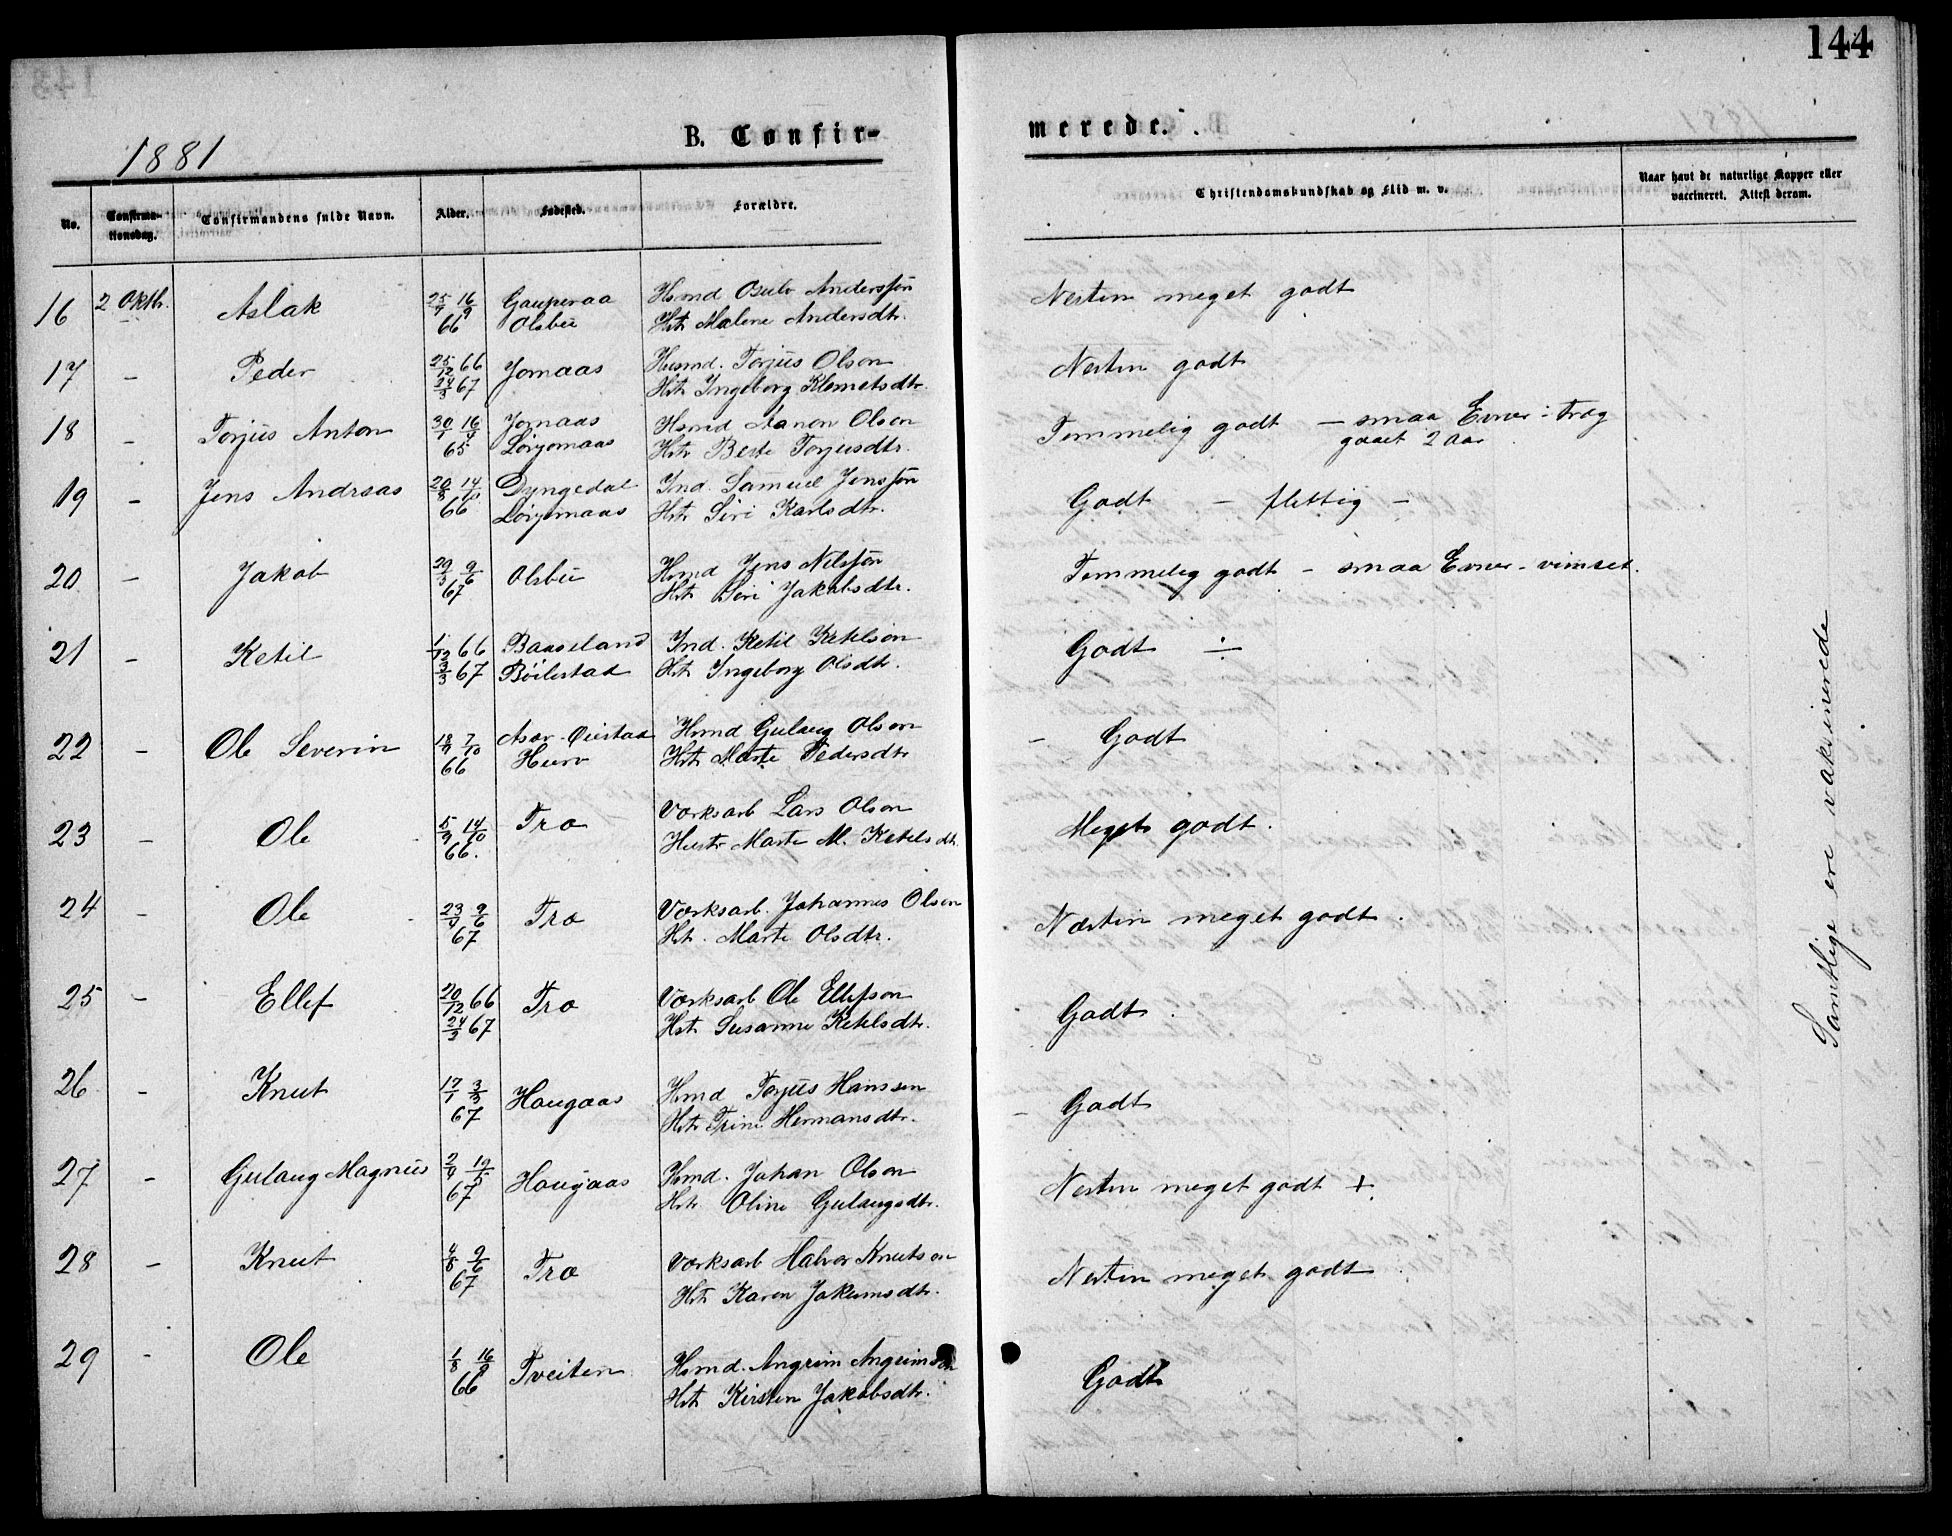 144
1881
B. Confir-
merede.
No.
Confirma-
tionsdag.
Confirmandens fulde Navn.
Alder.
Fødested.
Forældre.
Christendomskundskab og Flid m. v.
Naar havt de naturlige Kopper eller
vaccineret. Attest derom.
16 2 Oktb. Aslak 25/7 16/9 66 Gauperaa Olsbu
Hsmd Osulv Andersson
Hst Malene Andersdtr.
Nesten meget godt
17 - Peder 25/12 66 24/3 67 Jomaas
Husmd. Torjus Olson
Hst Ingeborg Klemetsdtr.
Nesten godt
18 - Torjus Anton 30/1 16/4 65 Jomaas Løvjomaas
Hsmd Aanon Olson
Hst Berte Torjusdtr.
Temmelig godt - smaa Evner - trag
gaaet 2 Aar
19 - Jens Andreas 20/8 14/10 66 Dyngedal Løvjomaas
Ind. Samuel Jensson
Hst Siri Karlsdtr.
Godt - flittig -
20 - Jakob 29/3 9/6 67 Olsbu
Hsmd Jens Nilsson
Hst Siri Jakobsdtr.
Temmelig godt - smaa Evner - vimset.
21 - Ketil 1/12 66 3/3 67 Baaseland Bøilestad
Ind. Ketil Ketilson
Hst Ingeborg Olsdtr.
Godt ÷
22 - Ole Severin 18/9 7/10 66 Øiestad Hurv
Hsmd Gulaug Olson
Hst Marte Pedersdtr
- Godt
23 - Ole 5/9 14/10 66. Tra
Værksarb Lars Olson
Hustr Marte M. Ketelsdtr.
Meget godt.
24 - Ole 23/4 9/6 67 Tra
Værksarb. Johannes Olsen
Hst. Marte Olsdtr.
Næsten meget godt.
25 - Ellef 20/12 66 24/3 67 Tra
Værksarb Ole Ellefson
Hst Susanne Ketelsdtr.
Godt
26 - Knut 17/1 3/3 67 Haugaas
Hsmd Torjus Hanssen
Hst Trine Hermansdtr.
- Godt
27 - Gulaug Magnus 2/4 19/5 67 Haugaas
Hsmd. Johan Olson
Hst. Oline Gulaugsdtr.
Nesten meget godt +.
28 - Knut 4/5 9/6 67 Tra
Værksarb Halvor Knutson
Hst Karen Jokumsdtr.
Nesten meget godt
29 - Ole 1/8 16/9 66 Tveiten
Hsmd. Angrim Angrimson
Hst Kirsten Jakobsdtr.
Godt
Samtlige ere vaksinerede